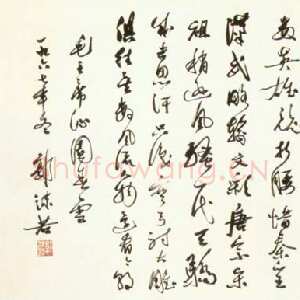 數英雄競折腰惜秦皇
漢武略輸文采唐宗宋
祖稍遜風騷一代天驕
成吉思汗只識彎弓射大雕
俱往矣數風流人物還看今朝
毛主席沁園春雪
一九六七年冬 郭沫若
Shufawang.cn